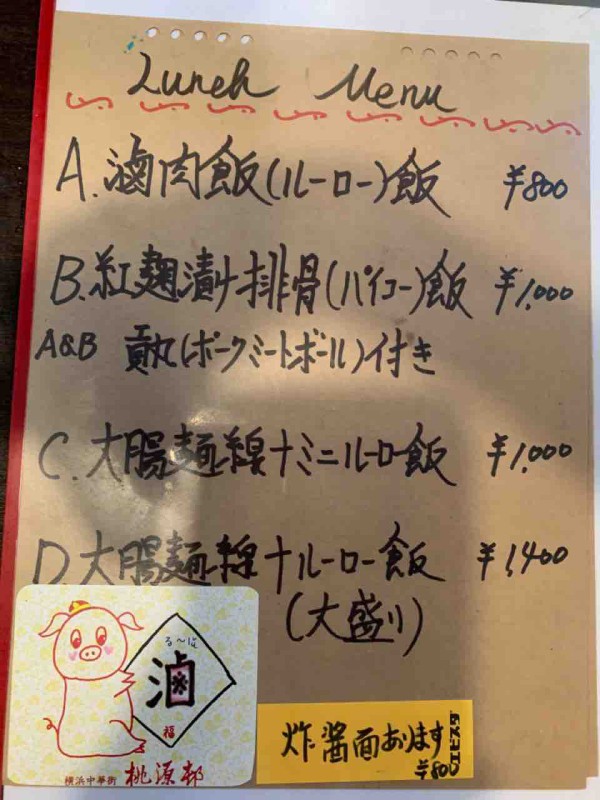 Lunch Menu
A.滷肉飯(ルーロー)飯 ¥800
B.紅麹漬け排骨(パイコー)飯 ¥1,000
A&B 貢丸(ポークミートボール)付き
C.大腸麺線+ミニルーロー飯 ¥1,000
D.大腸麺線+ルーロー飯 ¥1,400
(大盛り)
る〜は
滷
福
横浜中華街 桃源邨
炸醤面あります
¥800